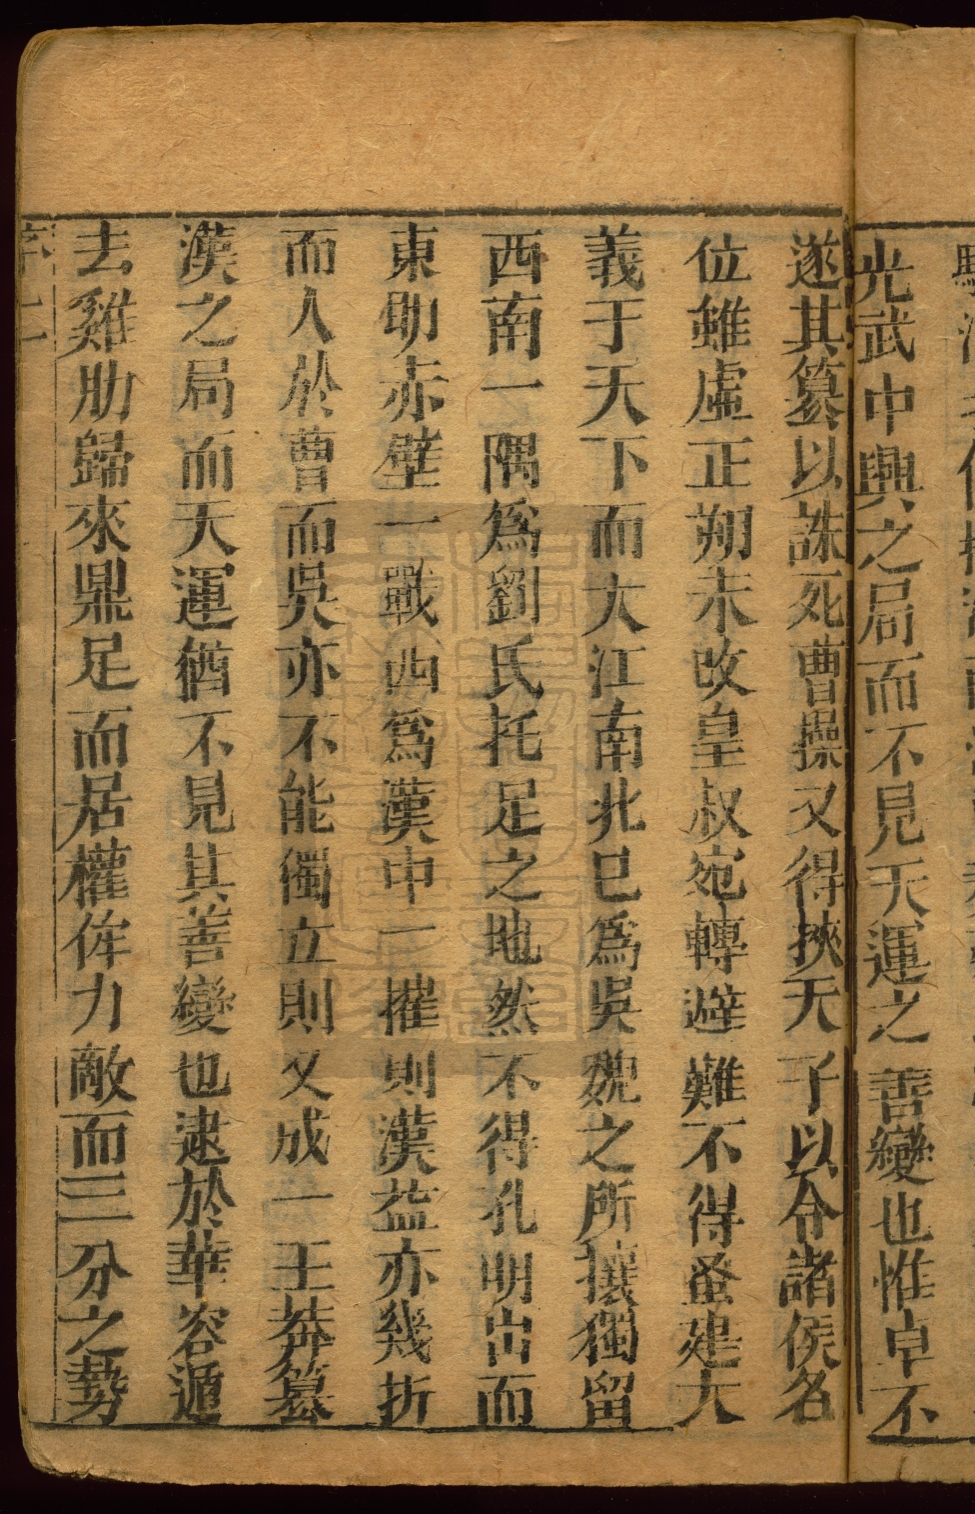 光武中興之局而不見天運之善變也惟卓不
遂其篡以誅死曹操又得挾天子以令諸侯名
位雖虛正朔未改皇叔宛轉避難不得蚤建大
義于天下而大江南北已爲吳魏之所攘獨留
西南一隅爲劉氏托足之地然不得孔明出而
東助赤壁一戰西爲漢中一摧則漢益亦幾折
而入於曹而吳亦不能獨立則又成一王莽篡
漢之局而天運猶不見其善變也逮於華容遁
去雞肋歸來鼎足而居權侔力敵而三分之勢
序 二